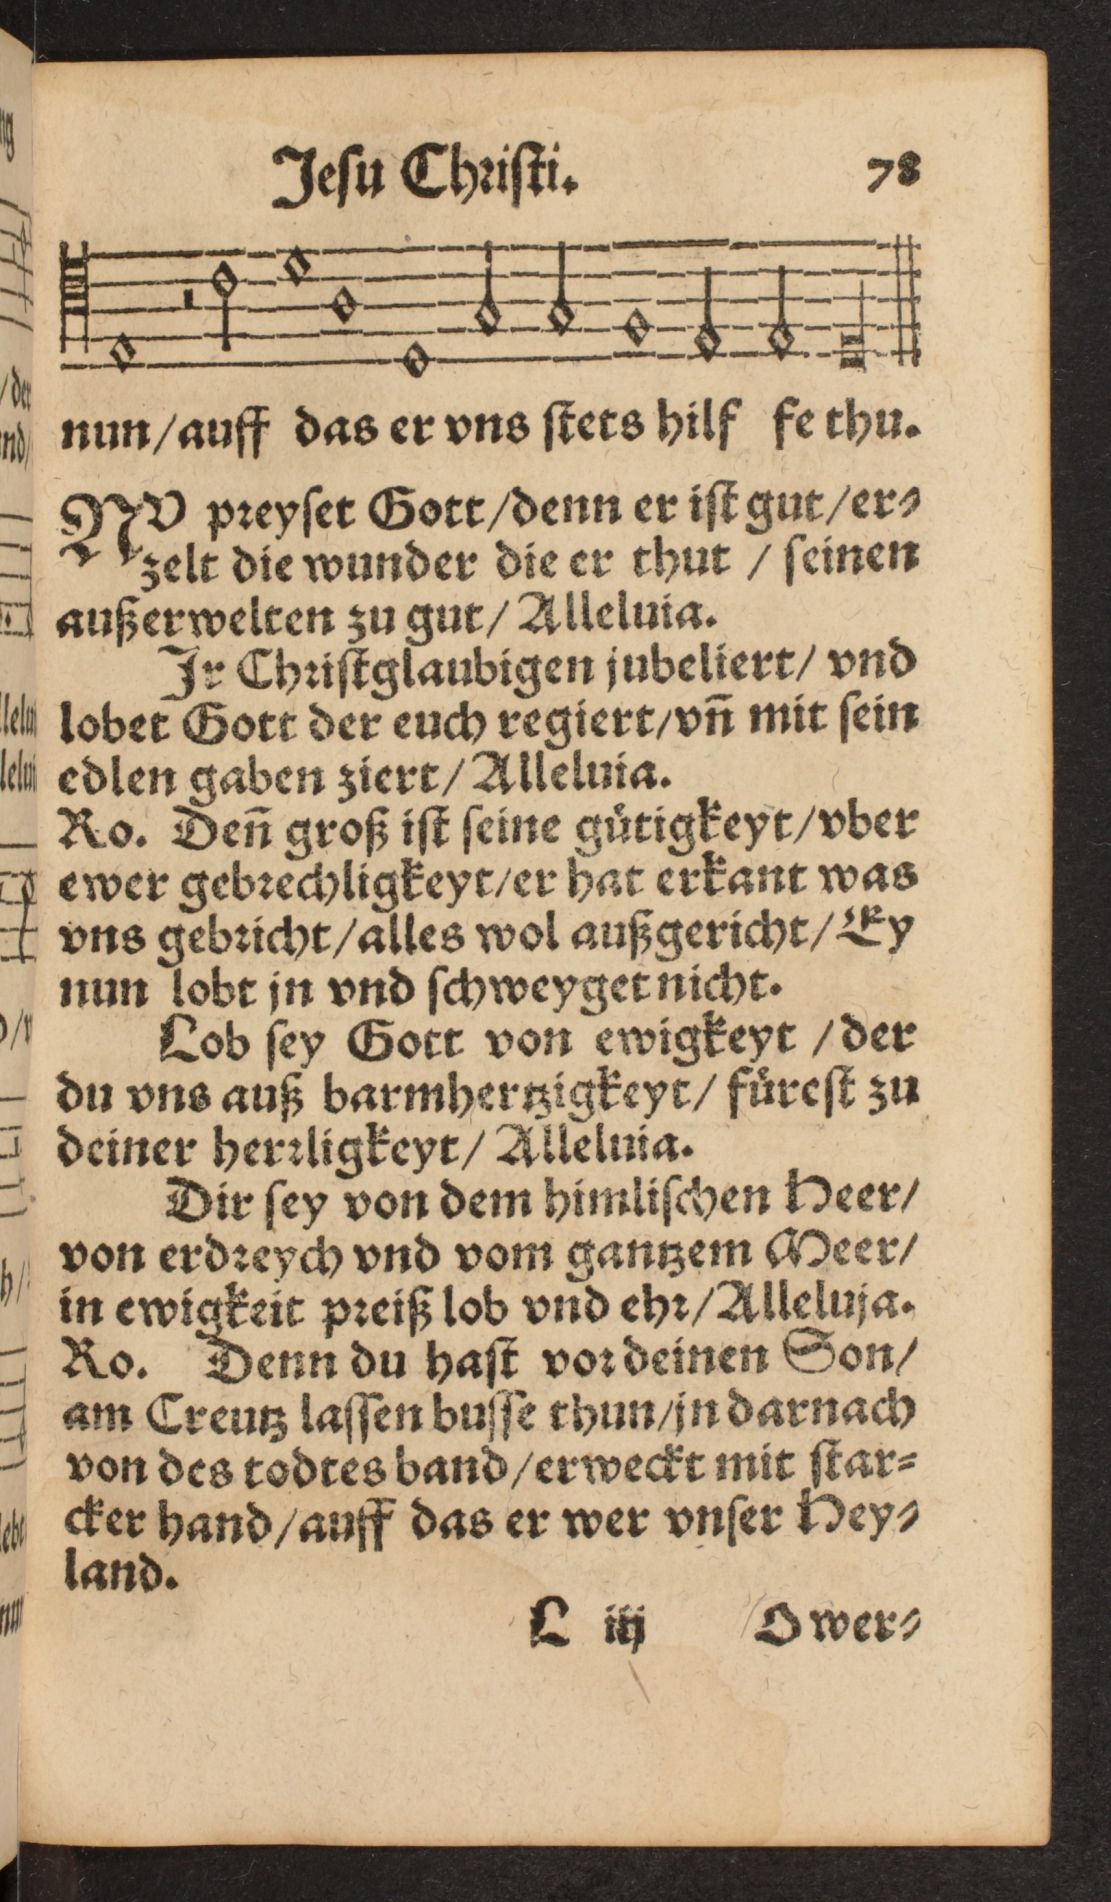 Jesu Chriſti. 78
nun/auff das er vns ſtets hilf fe thu.
NV preyſet Gott/denn er iſt gut/er⸗
zelt die wunder die er thut / ſeinen
außerwelten zu gut/ Alleluia.
Jr Chriſtglaubigen jubeliert/ vnd
lobet Gott der euch regiert/vn̄ mit ſein
edlen gaben ziert/ Alleluia.
Ro. Den̄ groß iſt ſeine guͤtigkeyt/vber
ewer gebrechligkeyt/er hat erkant was
vns gebricht/alles wol außgericht/Ey
nun lobt jn vnd ſchweyget nicht.
Lob ſey Gott von ewigkeyt /der
du vns auß barmhertzigkeyt/ fuͤreſt zu
deiner herrligkeyt/ Alleluia.
Dir ſey von dem himliſchen Heer/
von erdreych vnd vom gantzem Meer/
in ewigkeit preiß lob vnd ehr/Alleluja.
Ro. Denn du haſt vor deinen Son/
am Creutz laſſen buſſe thun/jn darnach
von des todtes band/erweckt mit ſtar⸗
cker hand/auff das er wer vnſer Hey⸗
land.
L iij O wer⸗